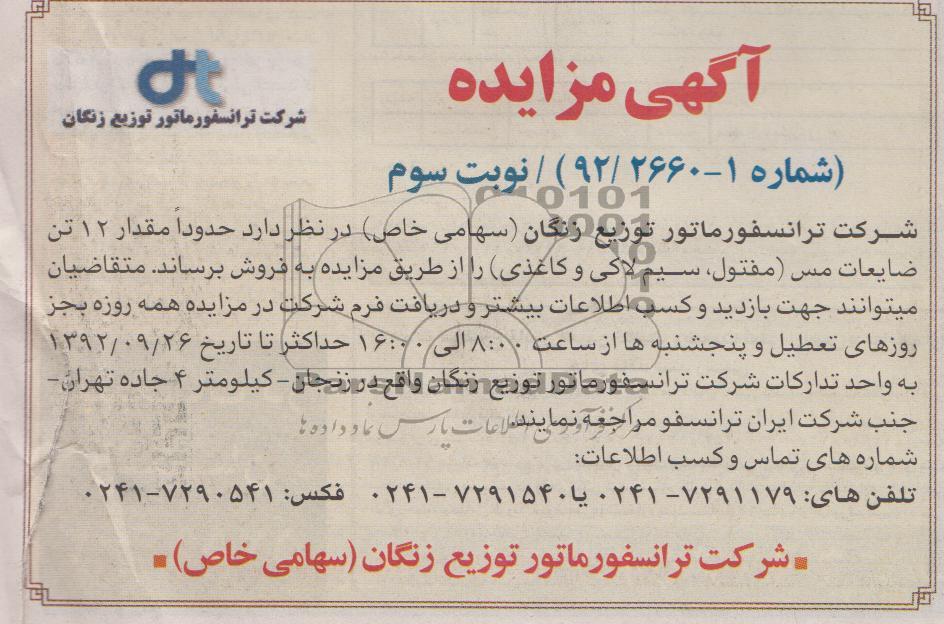 آگهی مزایده
شرکت ترانسفورماتور توزیع زنگان
(شماره ۱-۲۶۶۰ /۹۲ ) / نوبت سوم
شـرکت ترانسفورماتور توزیع زنگان (سهامی خاص) در نظر دارد حدوداً مقدار ۱۲ تن
ضایعات مس (مفتول، سـیم لاکی و کاغذی) را از طریق مزایده به فروش برساند. متقاضیان
میتوانند جهت بازدید و کسب اطلاعات بیشتر و دریافت فرم شرکت در مزایده همه روزه بجز
روزهای تعطیل و پنجشنبه ها از ساعت ۸:۰۰ الی ۱۶:۰۰ حداکثر تا تاریخ ۱۳۹۲/۰۹/۲۶
به واحد تدارکات شرکت ترانسفورماتور توزیع زنگان واقع در زنجان- کیلومتر ۴ جاده تهران-
جنب شرکت ایران ترانسفو مراجعه نمایند.
شماره های تماس و کسب اطلاعات:
تلفن های: ۷۲۹۱۱۷۹- ۰۲۴۱ یا ۷۲۹۱۵۴۰ -۰۲۴۱ فکس: ۷۲۹۰۵۴۱-۰۲۴۱
شرکت ترانسفورماتور توزیع زنگان (سهامی خاص)